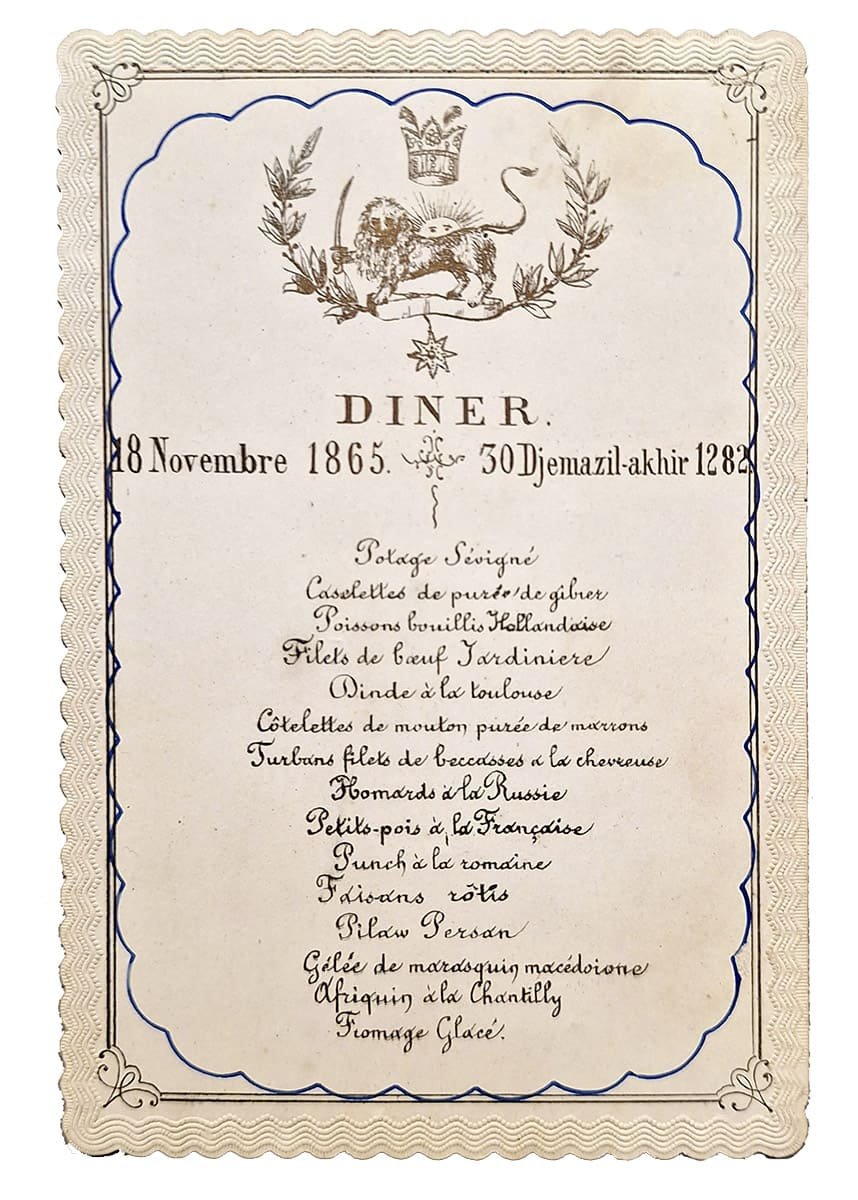 DINER.
18 Novembre 1865. 30 Djemazil-akhir 1282.
Potage Sévigné
Caselettes de purée de gibier
Poissons bouillis Hollandaise
Filets de bœuf Jardiniere
Dinde à la toulouse
Côtelettes de mouton purée de marrons
Turbans filets de beccasses a la chevreuse
Homards à la Russie
Petits-pois à la Française
Punch à la romaine
Faisans rôtis
Pilaw Persan
Gêlée de marasquin macédoione
Afriquin à la Chantilly
Fromage Glacé.